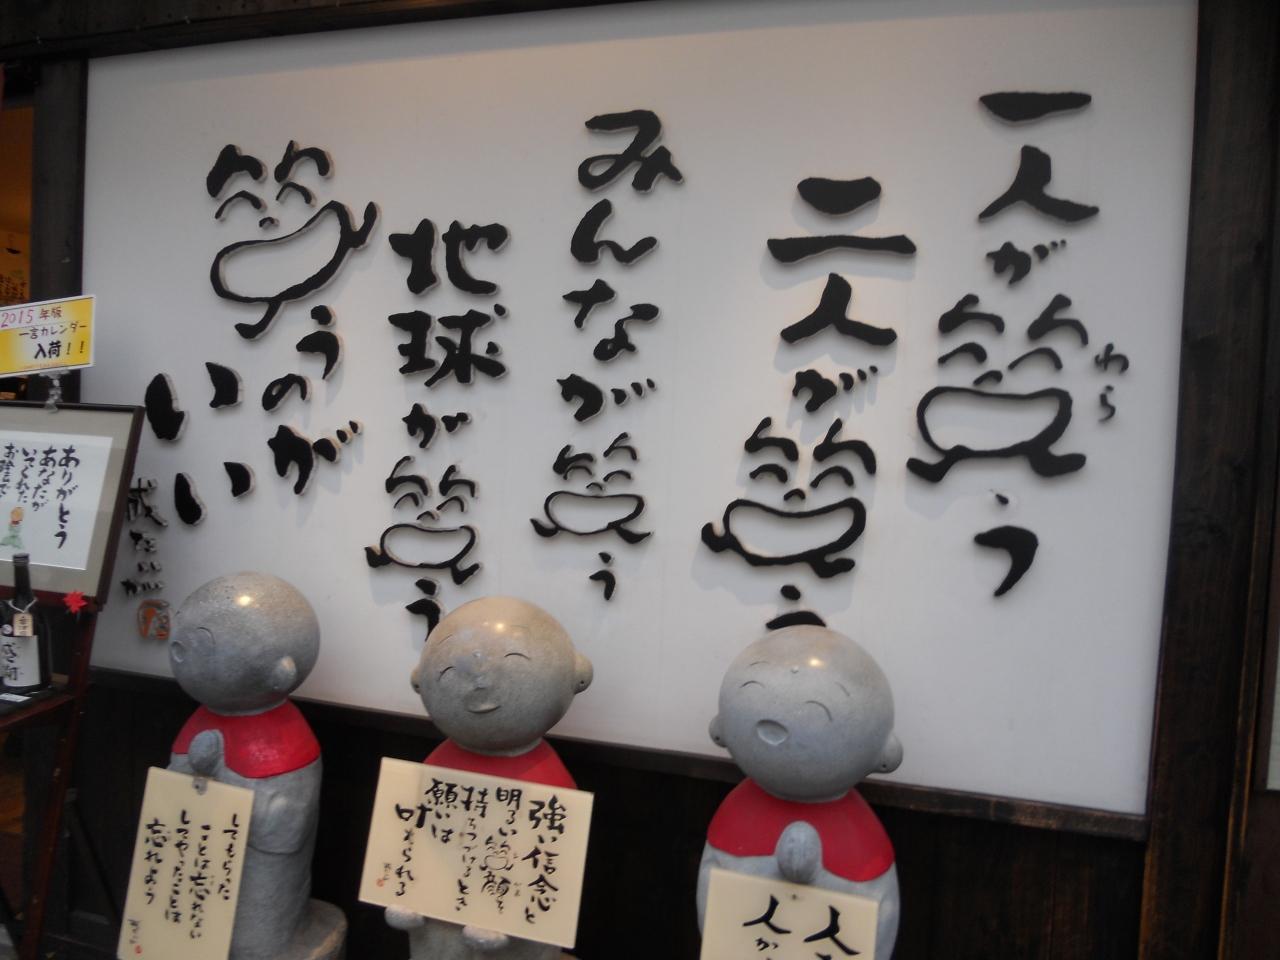 一人が笑う
わら
二人が笑う
みんなが笑う
地球が笑う
笑うのが
いい
2015年版
一言カレンダー
入荷！！
ありがとう
あなたが
いてくれた
お陰で
感謝
強い信念と
明るい笑顔を
持ちつづけるとき
願いは
叶えられる
してもらった
ことは忘れない
してやったことは
忘れよう
人
人が